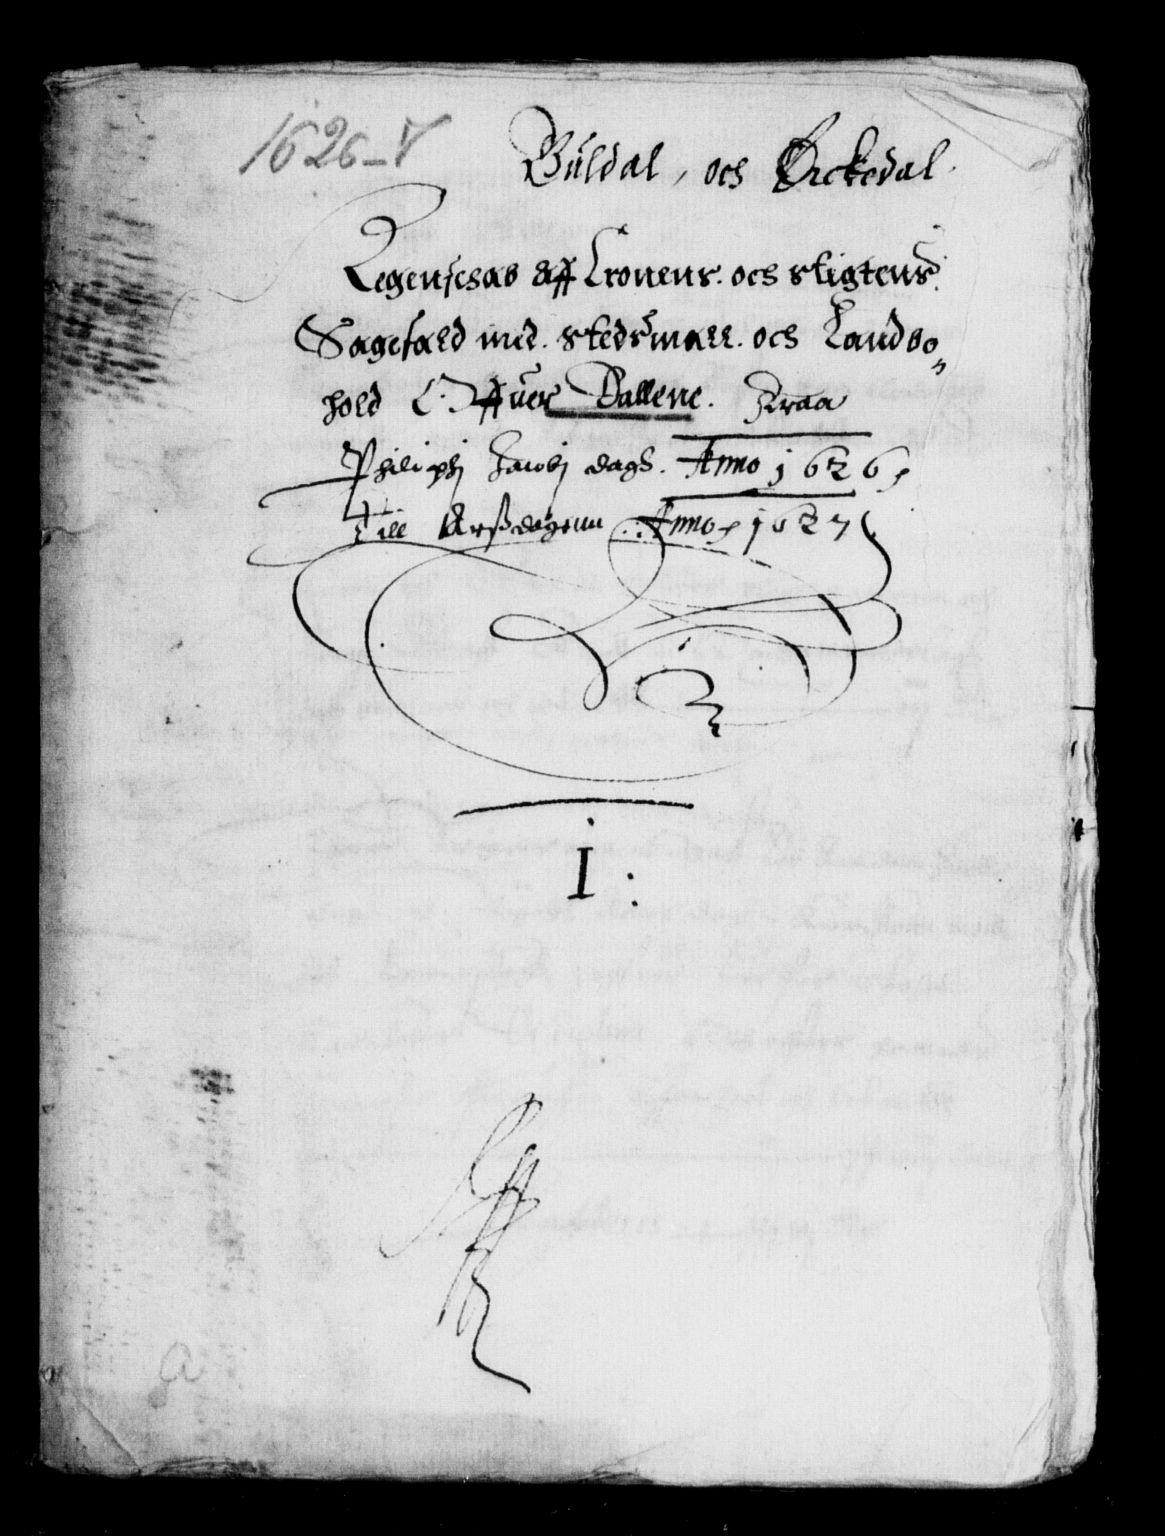 1626-V
Guldal, och Örckedal.
Regenskab aff Cronens. och stigtens
Sagefald med. stedsmaall. och Landbo
hold Offuer Dallene. Fraa
Philiphj Jacobj dagh. Anno 1626,
Till Aarßdagenn Anno, 1627
I:
a